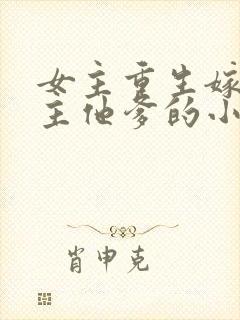 女主重生嫁
主他爹的小
肖申克